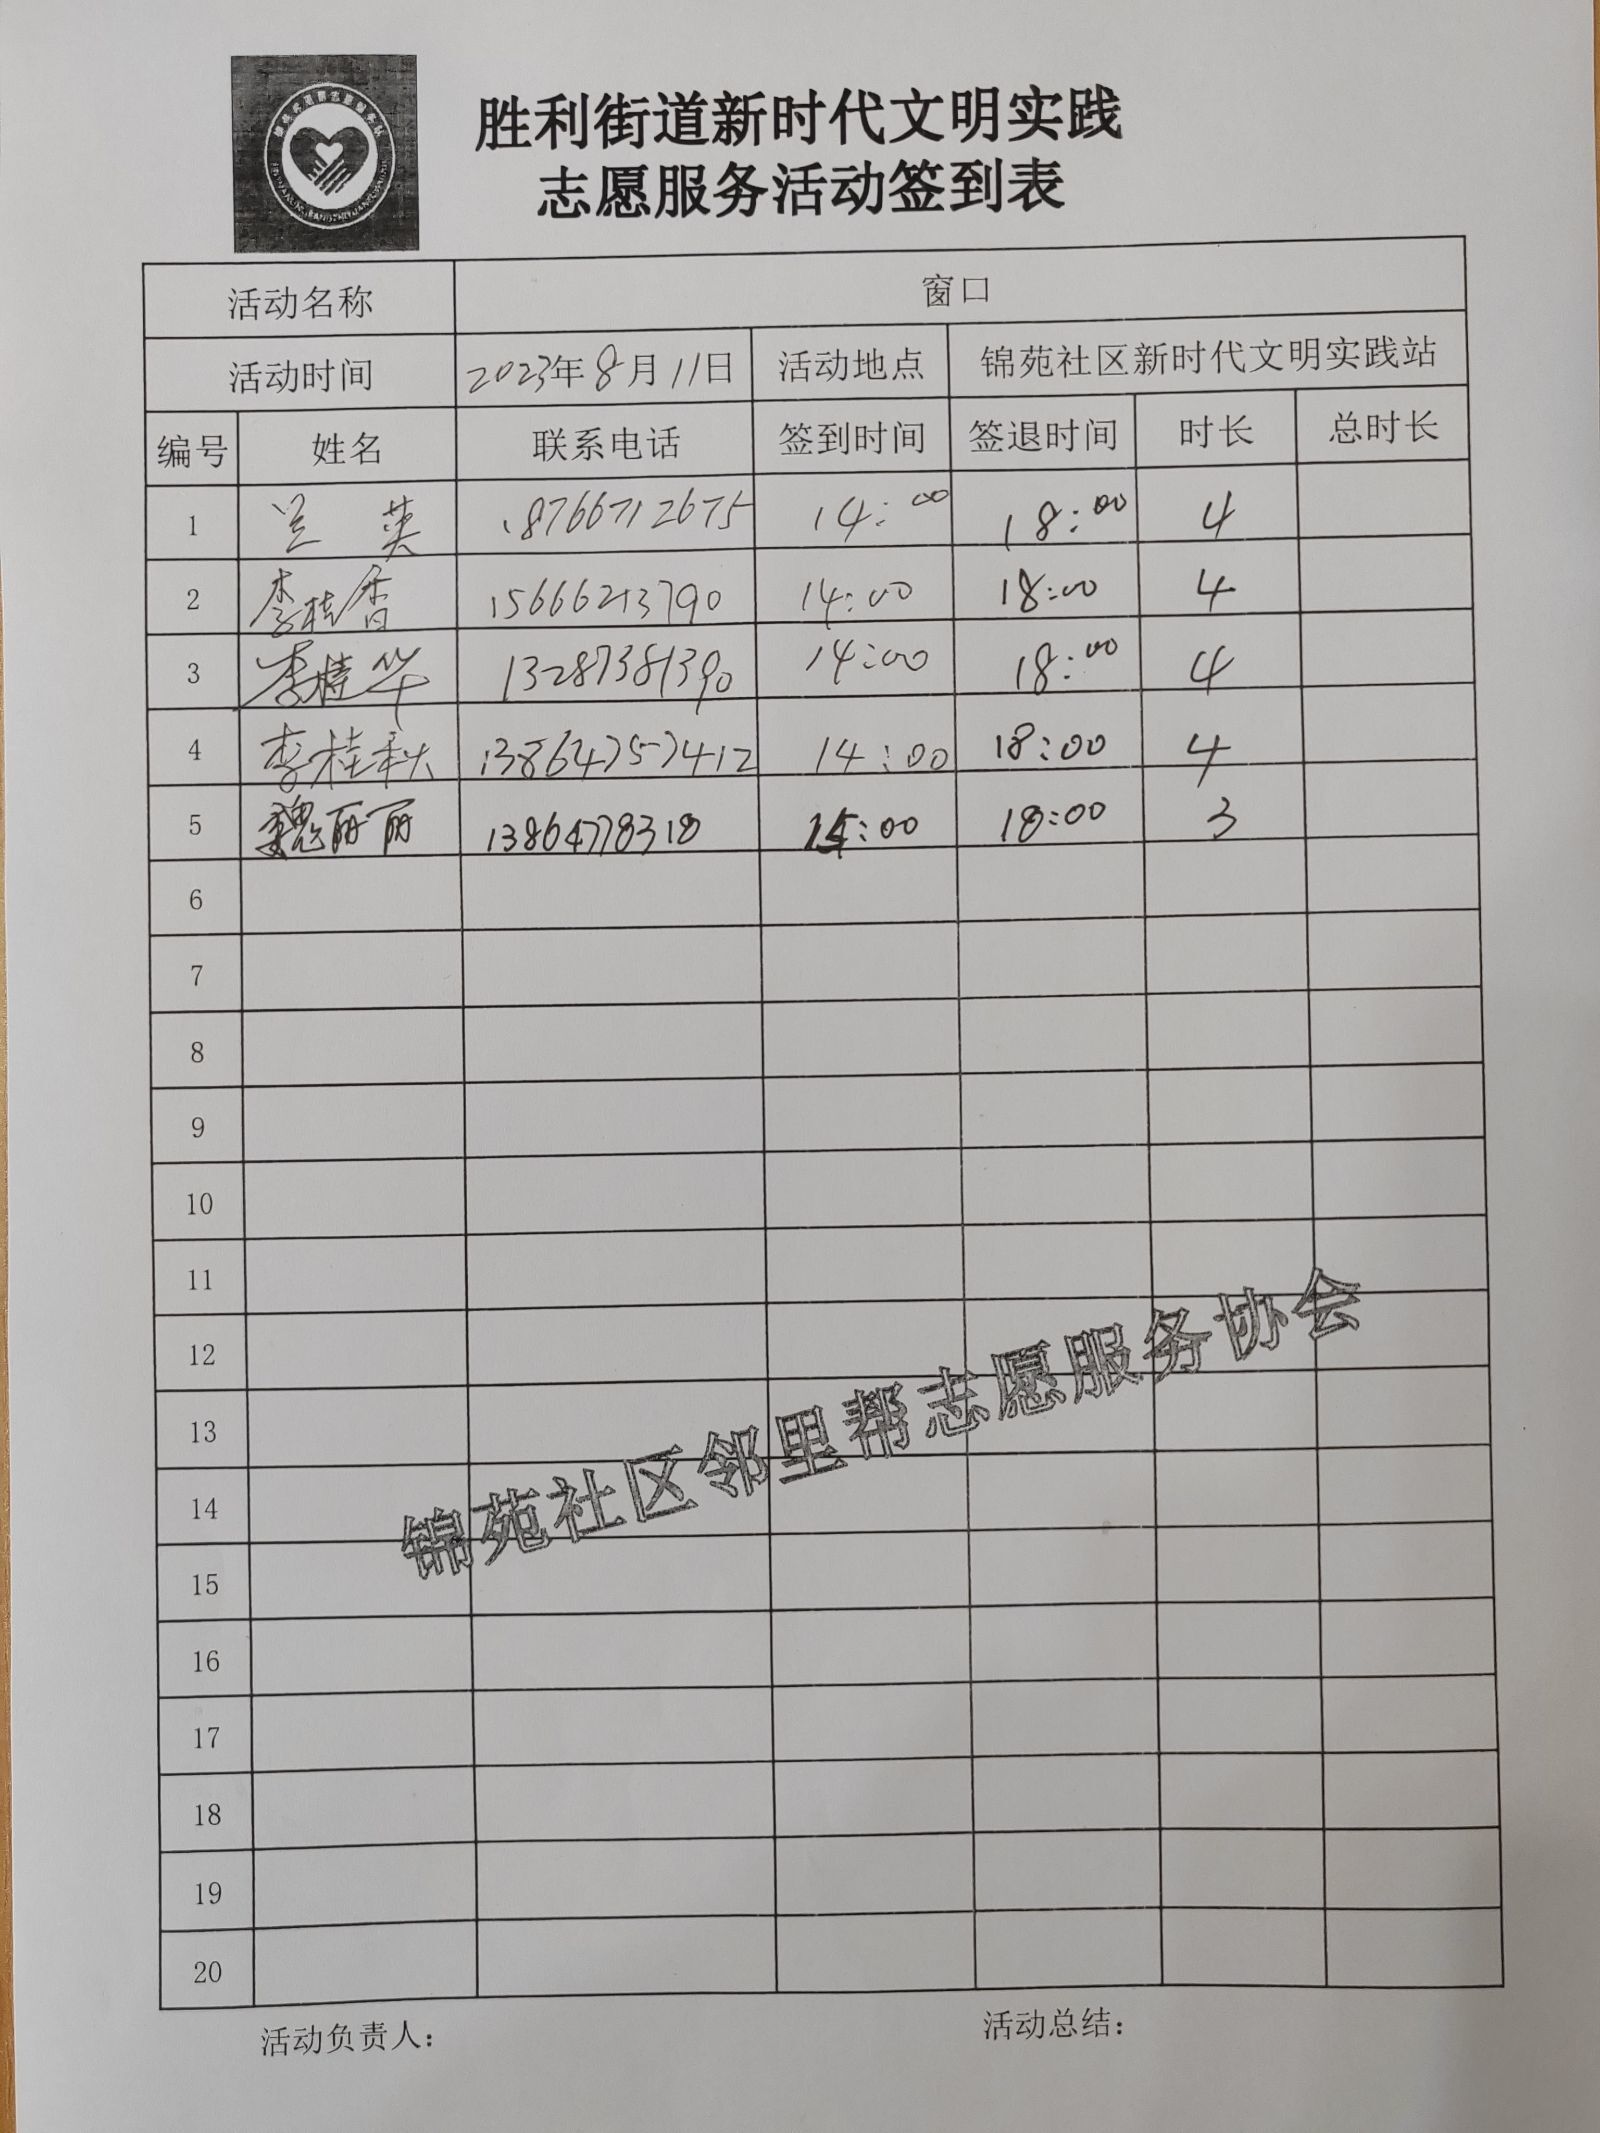 胜利街道新时代文明实践
志愿服务活动签到表
活动名称 窗口
活动时间 2023年8月11日 活动地点 锦苑社区新时代文明实践站
编号 姓名 联系电话 签到时间 签退时间 时长 总时长
1 兰英 18766712675 14:00 18:00 4
2 李桂香 15666213790 14:00 18:00 4
3 李桂华 13287381390 14:00 18:00 4
4 李桂秋 13864757412 14:00 18:00 4
5 魏丽丽 13864778318 15:00 18:00 3
6
7
8
9
10
11
12
13
14
15
16
17
18
19
20
锦苑社区邻里帮志愿服务协会
活动负责人： 活动总结：